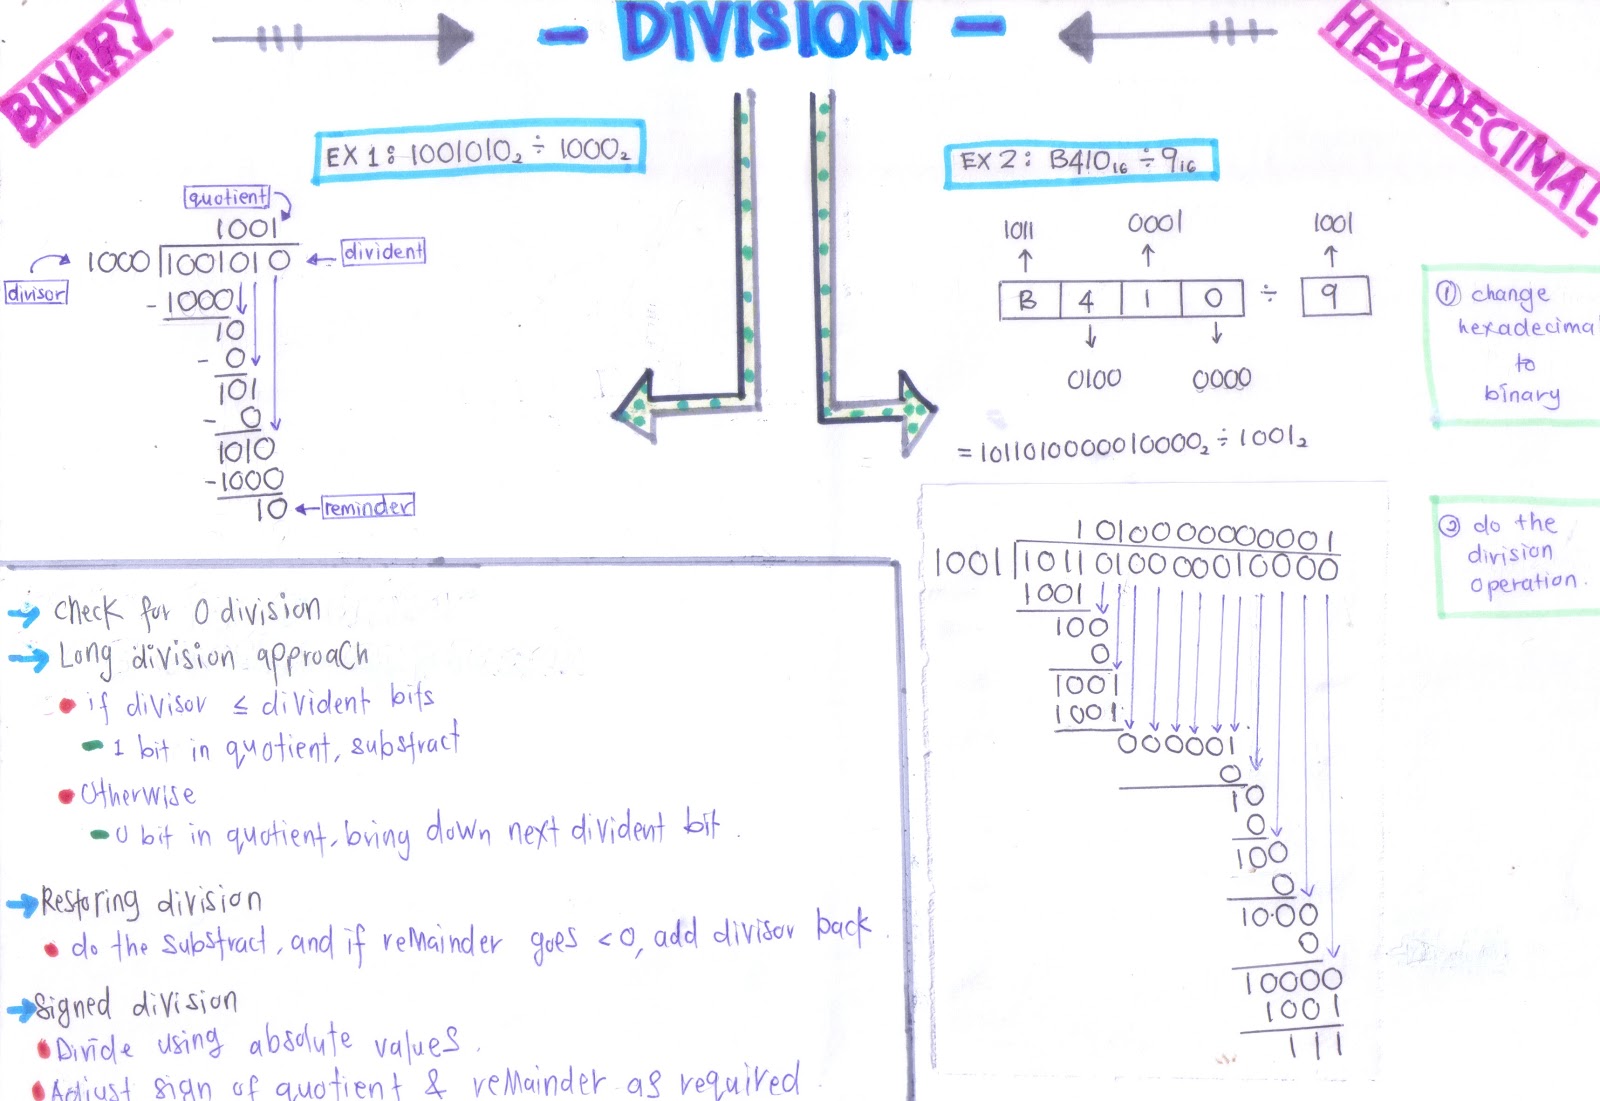 BINARY
- DIVISION -
HEXADECIMAL
EX 1: 1001010₂ ÷ 1000₂
quotient
1001
1000 1001010
divident
divisor
-1000
10
- 0
101
- 0
1010
-1000
10
reminder
EX 2: B410₁₆ ÷ 9₁₆
1011 0001 1001
B 4 1 0 ÷ 9
0100 0000
= 1011010000010000₂ ÷ 1001₂
1010000000001
1001 1011010000010000
1001
100
0
1001
1001
000001
0
10
0
100
0
10·00
0
10000
1001
111
① change
hexadecima
to
binary
② do the
division
operation.
check for 0 division
Long division approach
if divisor ≤ divident bits
- 1 bit in quotient, substract
Otherwise
- 0 bit in quotient, bring down next divident bit.
Restoring division
do the substract, and if remainder goes <0, add divisor back.
Signed division
Divide using absolute values.
Adjust sign of quotient & remainder as required.